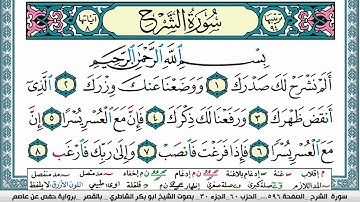 ترتيبها ٩٤ سُورَةُ الشَّرْحِ آياتها ٨
بِسْمِ اللَّهِ الرَّحْمَٰنِ الرَّحِيمِ
أَلَمْ نَشْرَحْ لَكَ صَدْرَكَ ١ وَوَضَعْنَا عَنكَ وِزْرَكَ ٢ الَّذِي
أَنقَضَ ظَهْرَكَ ٣ وَرَفَعْنَا لَكَ ذِكْرَكَ ٤ فَإِنَّ مَعَ الْعُسْرِ يُسْرًا ٥ إِنَّ
مَعَ الْعُسْرِ يُسْرًا ٦ فَإِذَا فَرَغْتَ فَانصَبْ ٧ وَإِلَىٰ رَبِّكَ فَارْغَب ٨
سورة الشرح الصفحة ٥٩٦ الحزب ٦٠ الجزء ٣٠ بصوت الشيخ أبو بكر الشاطري بالقصر برواية حفص عن عاصم